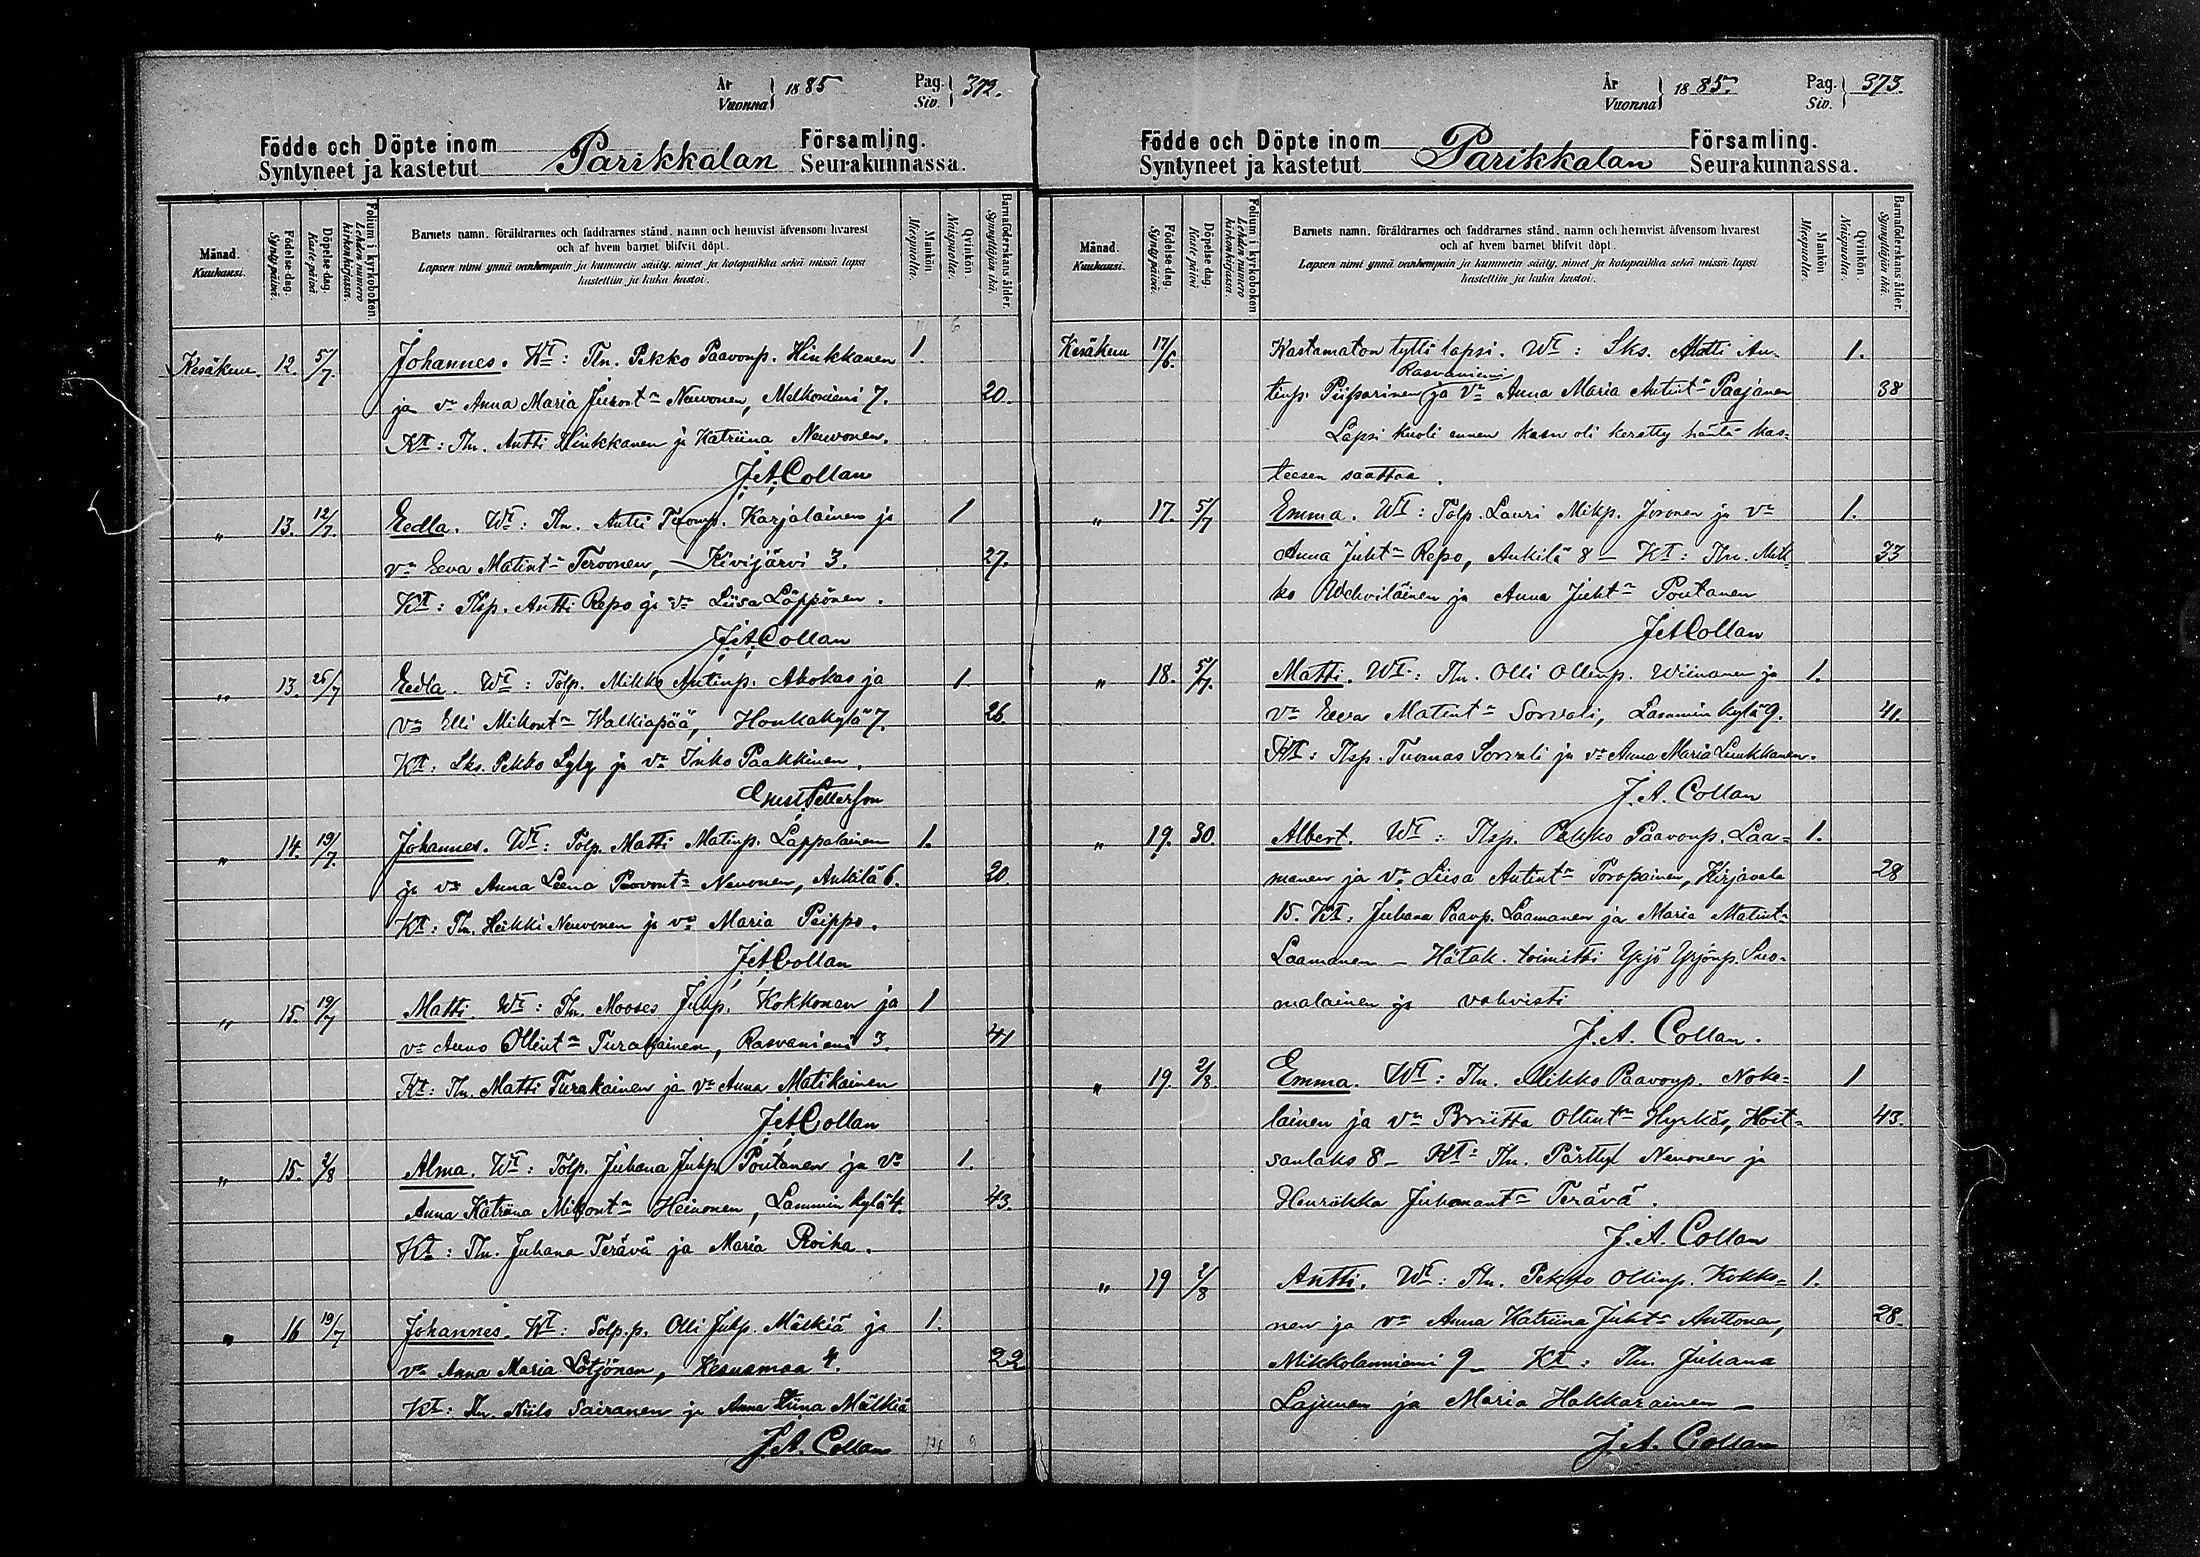 År
Vuonna } 1885
Pag.
Siv. } 372.
Födde och Döpte inom Parikkalan Församling.
Syntyneet ja kastetut Seurakunnassa.
Månad.
Kuukausi.
Födelse-dag.
Syntypäivä.
Döpelse-dag.
Kaste-päivä
Folium i kyrkoboken.
Lehden numero kirkonkirjassa.
Barnets namn, föräldrarnes och faddrarnes stånd, namn och hemvist äfvensom hvarest
och af hvem barnet blifvit döpt.
Lapsen nimi ynnä vanhempain ja kummein sääty, nimet ja kotopaikka sekä missä lapsi
kastettiin ja kuka kastoi.
Mankön
Miespuolta.
Qvinkön
Naispuolta.
Barnaföderskans ålder.
Synnyttäjän ikä.
Kesäkuu. 12. 5/7. Johannes. Wt: Tln. Pekko Paavonp. Hinkkanen 1.
ja vo Anna Maria Juhont Neuvonen, Melkoniemi 7. 20.
Kt: Tln. Antti Hinkkanen ja Katriina Neuvonen.
J.A. Collan
" 13. 12/7. Eedla. Wt: Tln. Antti Tuomp. Karjalainen ja 1
vo Eeva Matint Tervonen, Kivijärvi 3. 27.
Kt: Tlsp. Antti Repo ja vo Liisa Läppönen.
J.A. Collan
" 13. 26/7 Eedla. Wt: Tolp. Mikko Antinp. Ahokas ja 1.
vo Elli Mikont Walkiapää, Honkakylä 7. 26.
Kt: Lks. Pekko Lyly ja vo Inko Paakkinen.
" 14. 19/7. Johannes. Wt: Tolp. Matti Matinp. Lappalainen 1.
ja vo Anna Leena Paavont Neuonen, Ankilä 6. 20.
Kt: Tln. Heikki Neuvonen ja vo Maria Peippo.
J.A. Collan
" 15. 19/7 Matti. Wt: Tln. Mooses Juhp. Kokkonen ja 1
vo Anna Ollint Turakainen, Rasvaniemi 3. 41
Kt: Tln. Matti Turakainen ja vo Anna Matikainen
J.A. Collan
" 15. 2/8 Alma. Wt: Tolp. Juhana Juhp. Poutanen ja vo 1.
Anna Katriina Mikont Heinonen, Lamminkylä 4. 43.
Kt: Tln. Juhana Terävä ja Maria Roiha.
" 16 19/7 Johannes. Wt: Tolp.p. Olli Juhp. Mälkiä ja 1.
vo Anna Maria Lötjönen, Kesusmaa 4. 22
Kt: Tln. Niilo Sairanen ja Anna Stiina Mälkiä
J.A. Collan
År
Vuonna } 1885.
Pag.
Siv. } 373.
Födde och Döpte inom Parikkalan Församling.
Syntyneet ja kastetut Seurakunnassa.
Månad.
Kuukausi.
Födelse-dag.
Syntypäivä.
Döpelse-dag.
Kaste-päivä
Folium i kyrkoboken.
Lehden numero kirkonkirjassa.
Barnets namn, föräldrarnes och faddrarnes stånd, namn och hemvist äfvensom hvarest
och af hvem barnet blifvit döpt.
Lapsen nimi ynnä vanhempain ja kummein sääty, nimet ja kotopaikka sekä missä lapsi
kastettiin ja kuka kastoi.
Mankön
Miespuolta.
Qvinkön
Naispuolta.
Barnaföderskans ålder.
Synnyttäjän ikä.
Kesäkuu 17/6. Kastamaton tyttö lapsi. Wt: Lks. Matti An- 1.
Rasvaniemi
tinp. Piipparinen ja vo Anna Maria Antint Paajanen 38
Lapsi kuoli ennen kuin oli keretty häntä kas-
teesen saattaa.
" 17. 5/7 Emma. Wt: Tolp. Lauri Mikp. Joronen ja vo 1.
Anna Juht Repo, Ankilä 8 – Kt: Tln. Mik- 33
ko Wehviläinen ja Anna Juht Poutanen
J.A. Collan
" 18. 5/7. Matti. Wt: Tln. Olli Ollinp. Wiinanen ja 1.
vo Eeva Matint Sorvali, Lamminkylä 9. 41.
Kt: Tlsp. Tuomas Sorvali ja vo Anna Maria Luukkanen.
J.A. Collan
" 19. 30. Albert. Wt: Tlsp. Pekko Paavonp. Laa- 1.
manen ja vo Liisa Antint Toropainen, Kirjavala 28
15. Kt: Juhana Paavp. Laamanen ja Maria Matint
Laamanen – Hätäk. toimitti Yrjö Yrjönp. Suo-
malainen ja vahvisti
J.A. Collan.
" 19. 2/8. Emma. Wt: Tln. Mikko Paavonp. Noke- 1
lainen ja vo Briitta Ollint Hyrkäs, Hoit- 43.
sanlaks 8 – Kt: Tln. Pärttyl Neuonen ja
Henriikka Juhonant Terävä.
J.A. Collan
" 19 2/8 Antti. Wt: Tln. Pekko Ollinp. Kokko- 1.
nen ja vo Anna Katriina Juht Anttonen, 28.
Mikkolanniemi 9 – Kt: Tln. Juhana
Lajunen ja Maria Hakkarainen –
J.A. Collan